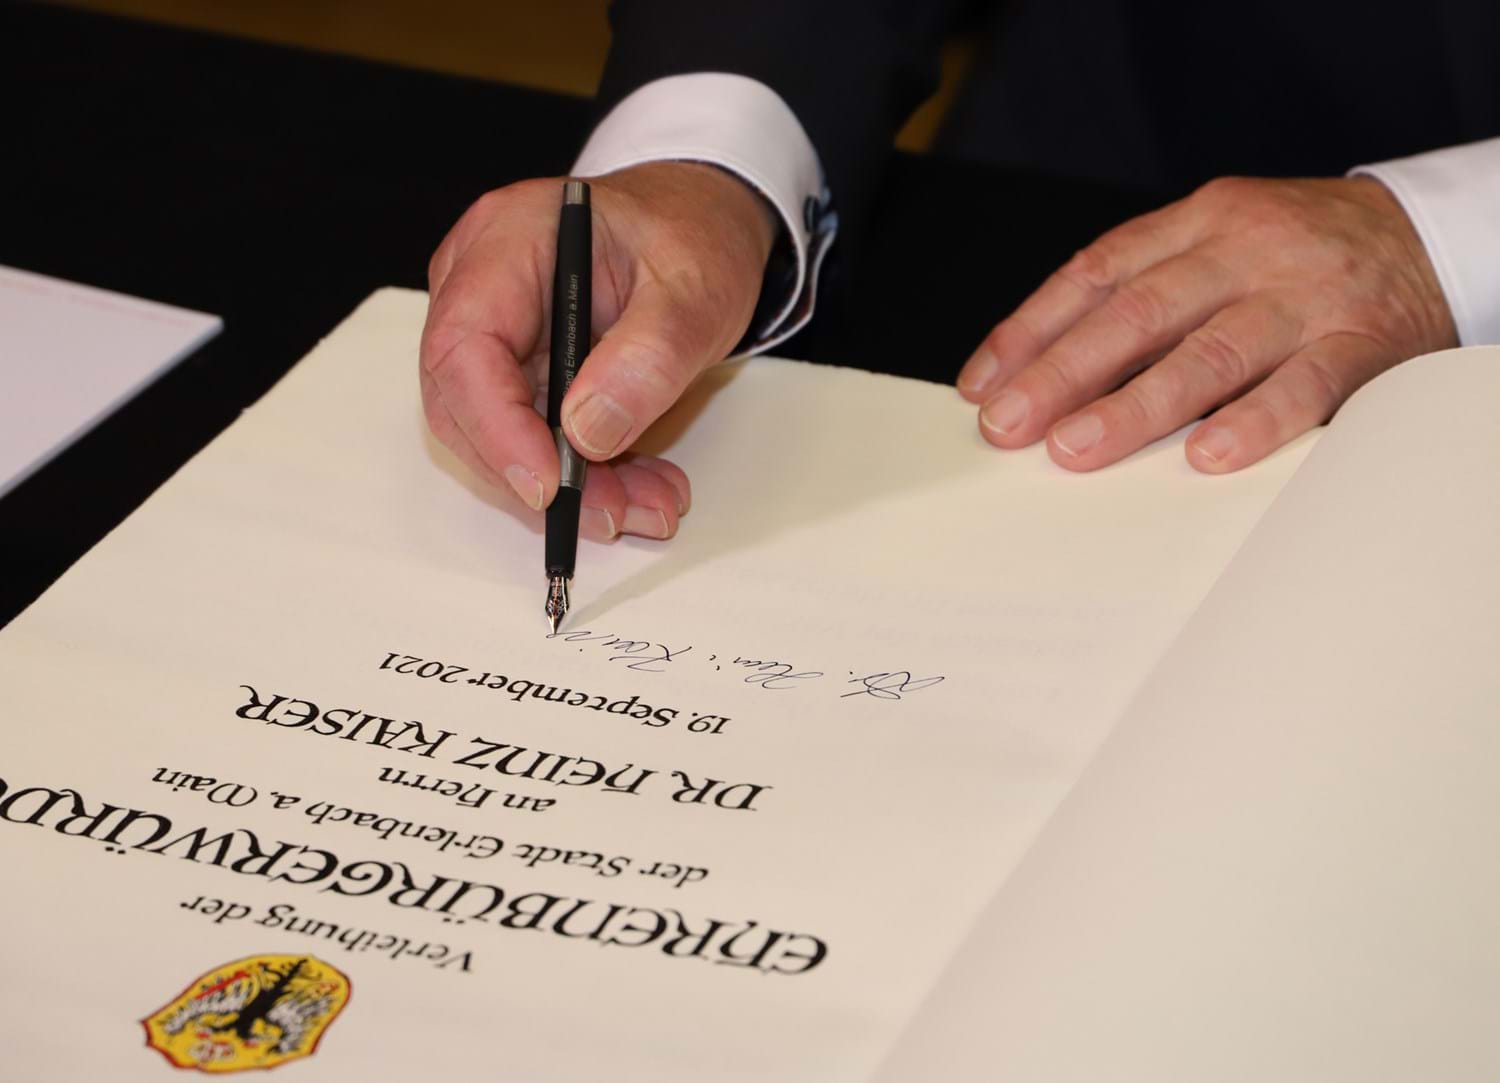 Verleihung der
EHRENBÜRGERWÜRD
der Stadt Erlenbach a. Main
an Herrn
DR. HEINZ KAISER
19. September 2021
Dr. Heinz Kais
Stadt Erlenbach a.Main